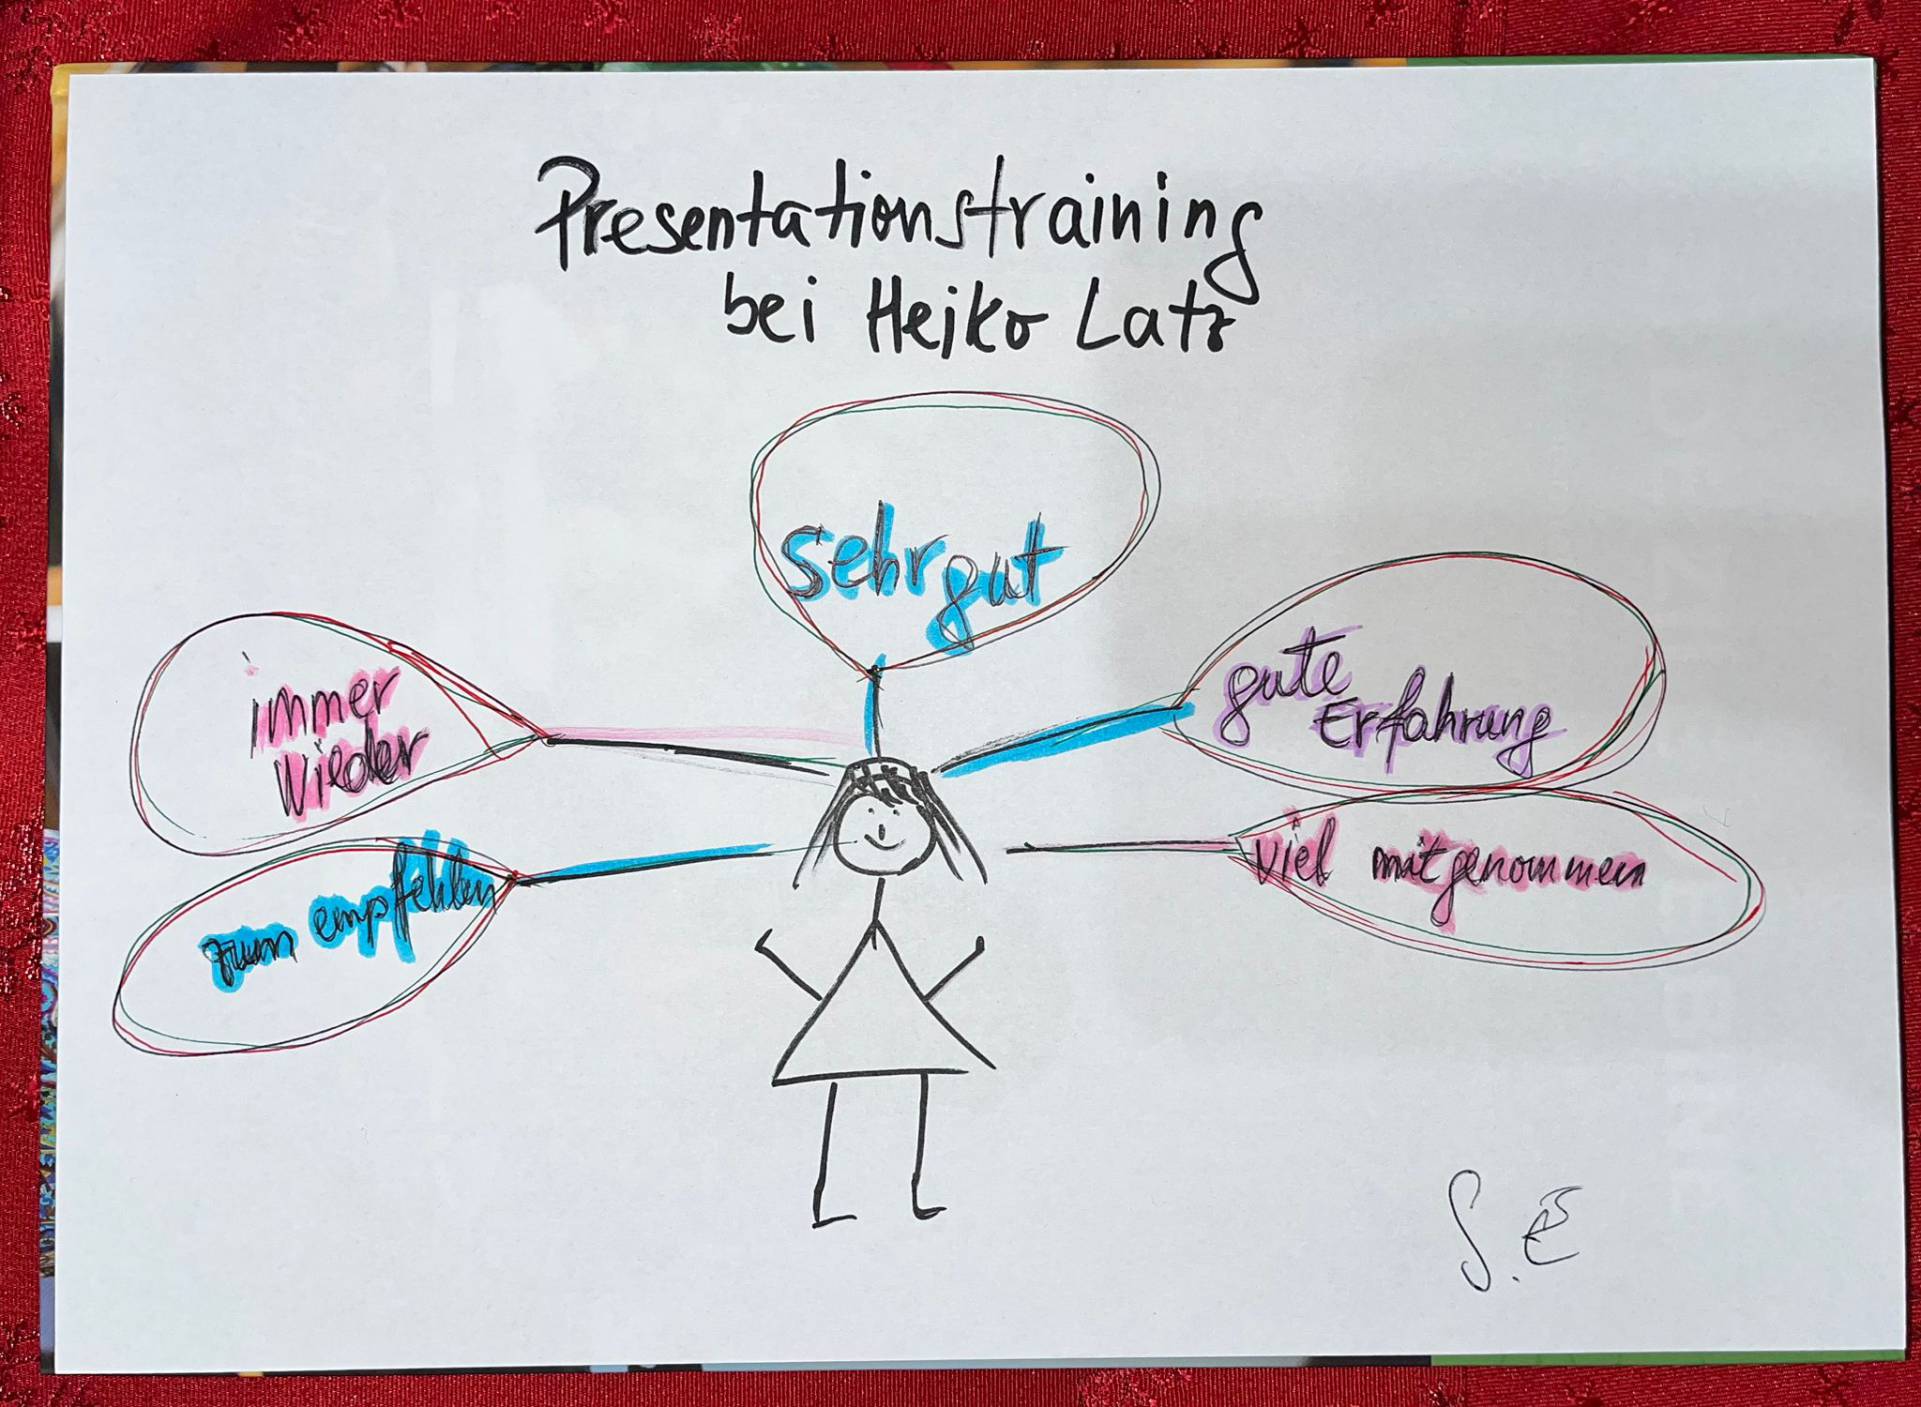 Presentationstraining
bei Heiko Latz
sehr gut
immer
wieder
gute
Erfahrung
zum empfehlen
viel mitgenommen
S. E